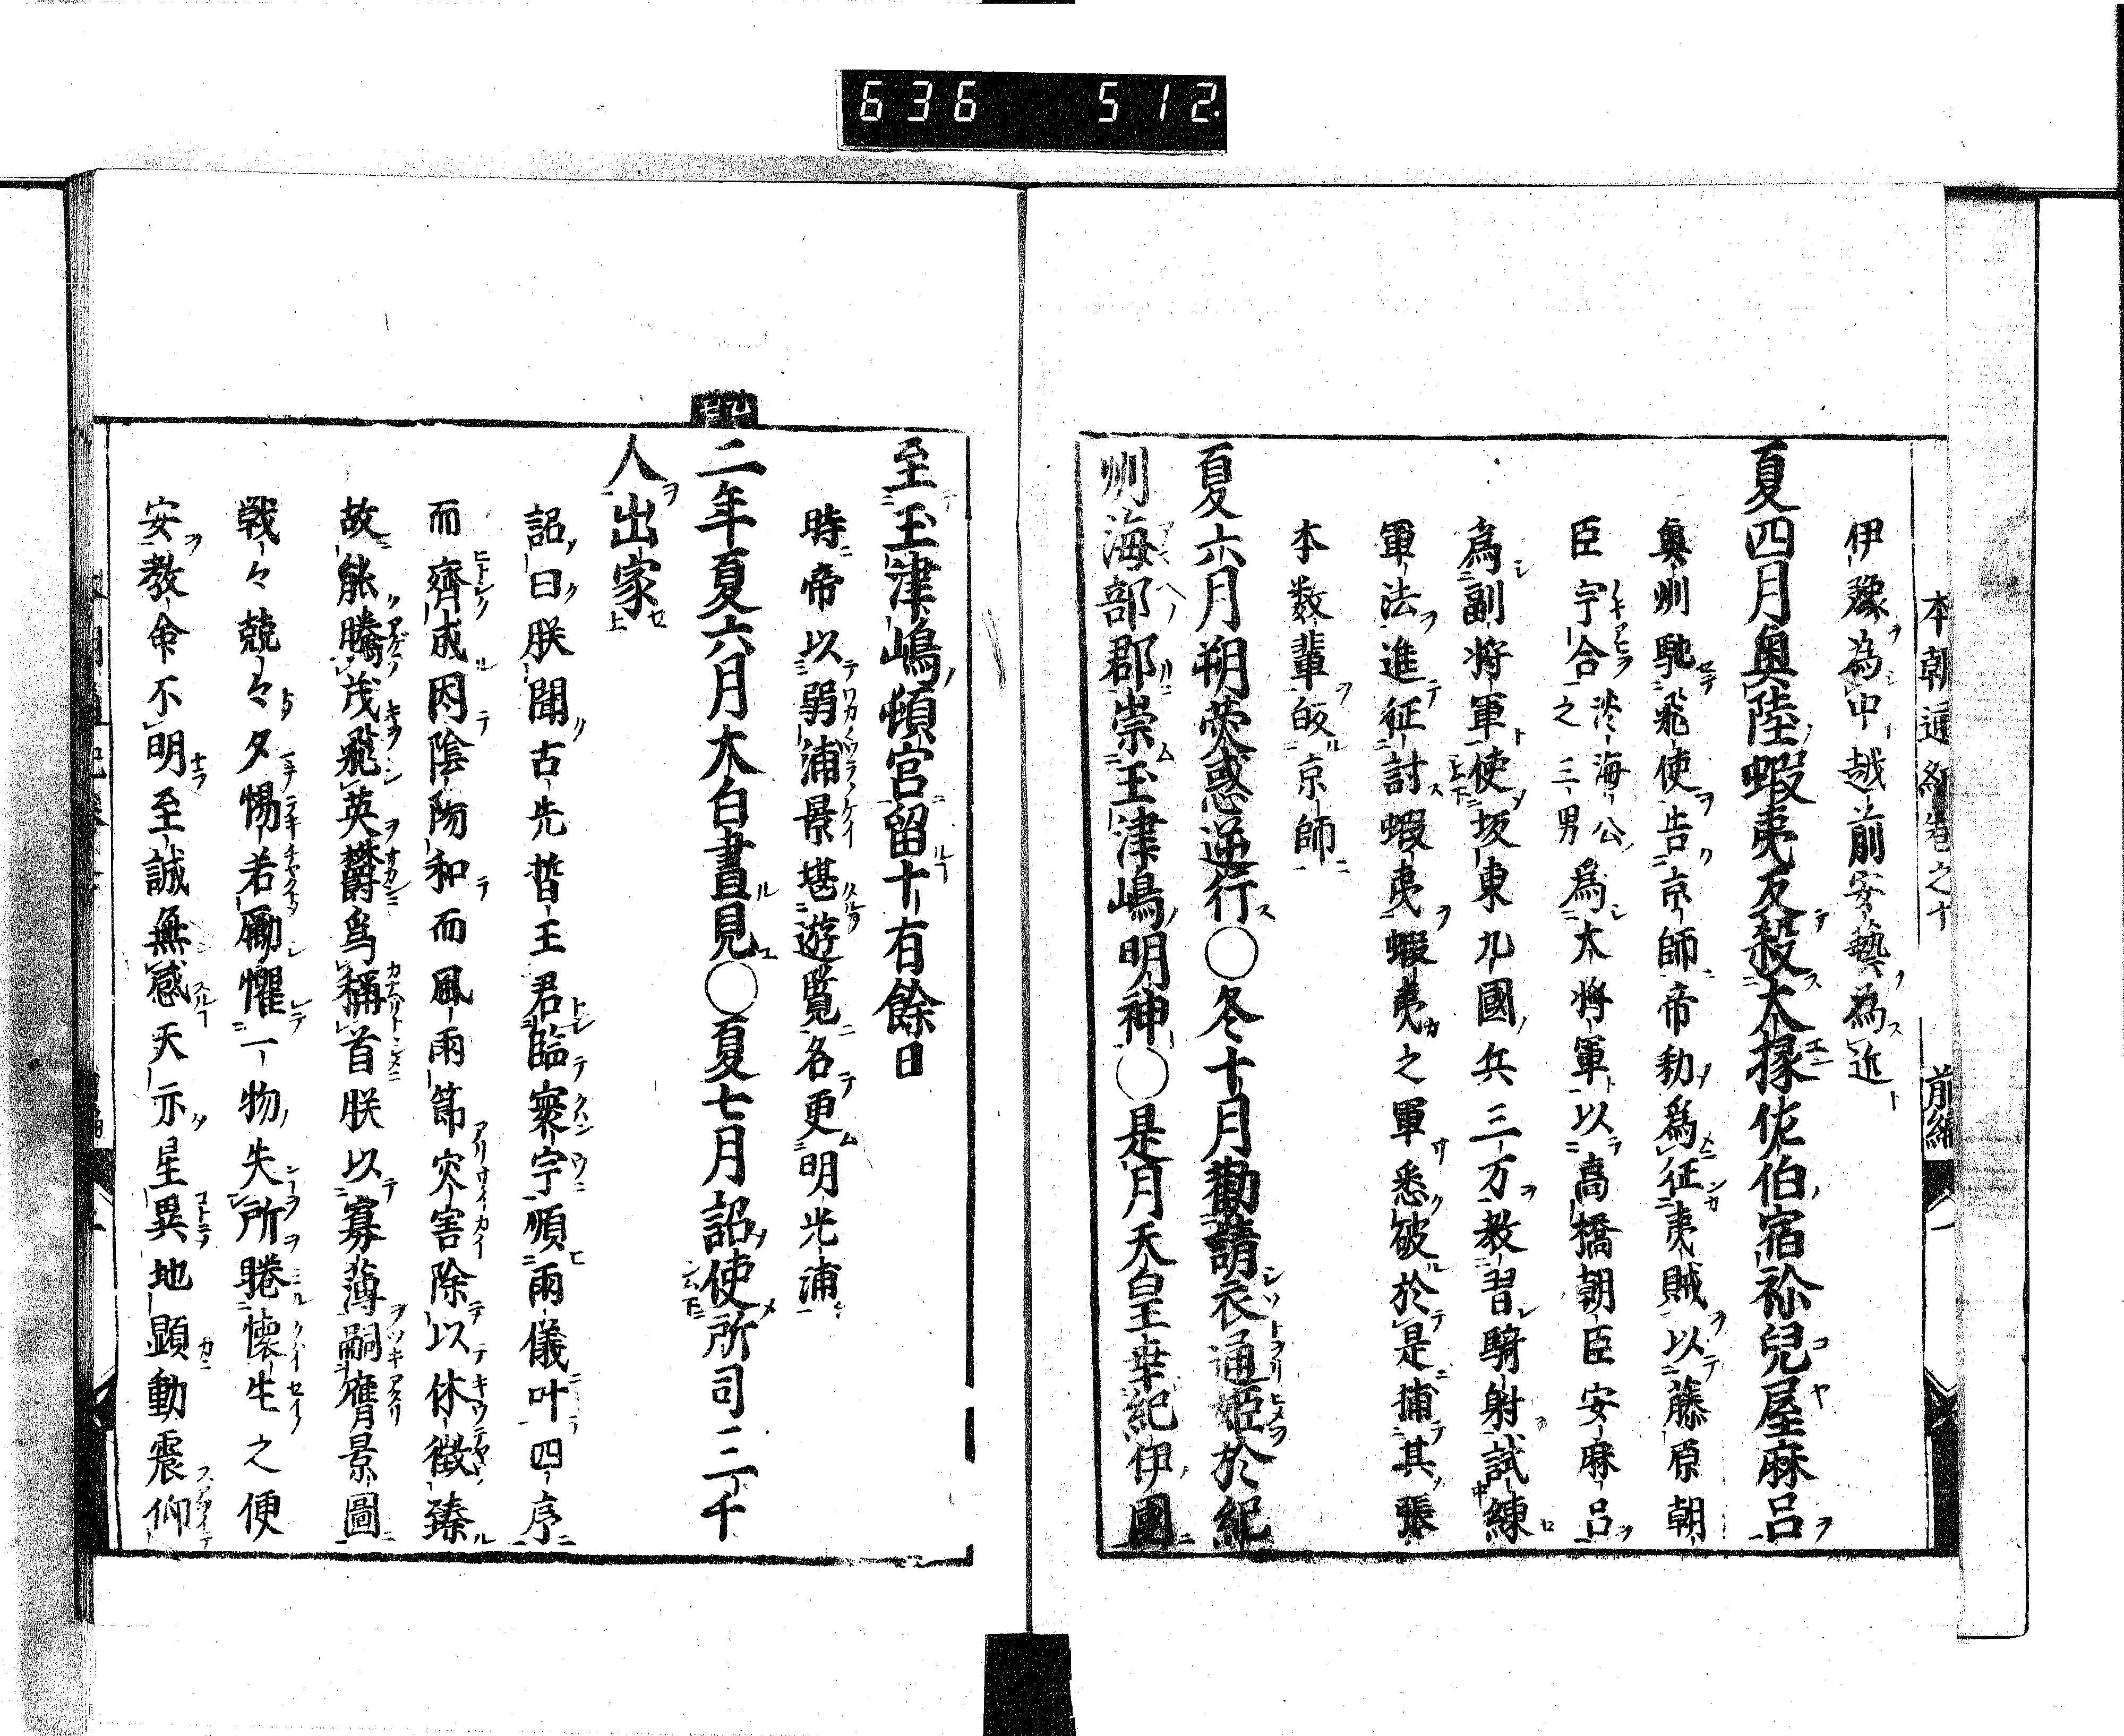 636 512.
本朝通紀卷之十 前編
伊豫為中越前安藝為近
夏四月奥陸蝦夷反殺大掾佐伯宿祢兒屋麻呂
奥州馳飛使告京師帝勅爲征夷賊以藤原朝
臣宇合淡海公之三男爲大将軍以高橋朝臣安麻呂
爲副将軍使坂東九國兵三万教習騎射試練
軍法進征討蝦夷蝦夷之軍悉破於是捕其張
本数輩皈京師
夏六月朔熒惑逆行〇冬十月勸請衣通姫於紀
州海部郡崇玉津嶋明神〇是月天皇幸紀伊國
至玉津嶋頓宮留十有餘日
時帝以弱浦景堪遊覧名更明光浦
二年夏六月太白晝見〇夏七月詔使所司三千
人出家
詔曰朕聞古先哲王君臨寰宇順兩儀叶四序
而齊成因陰陽和而風雨節灾害除以休徴臻
故能騰茂飛英欝爲稱首朕以寡薄嗣膺景圖
戦々兢々夕惕若厲懼一物失所睠懐生之便
安教命不明至誠無感天示星異地顕動震仰